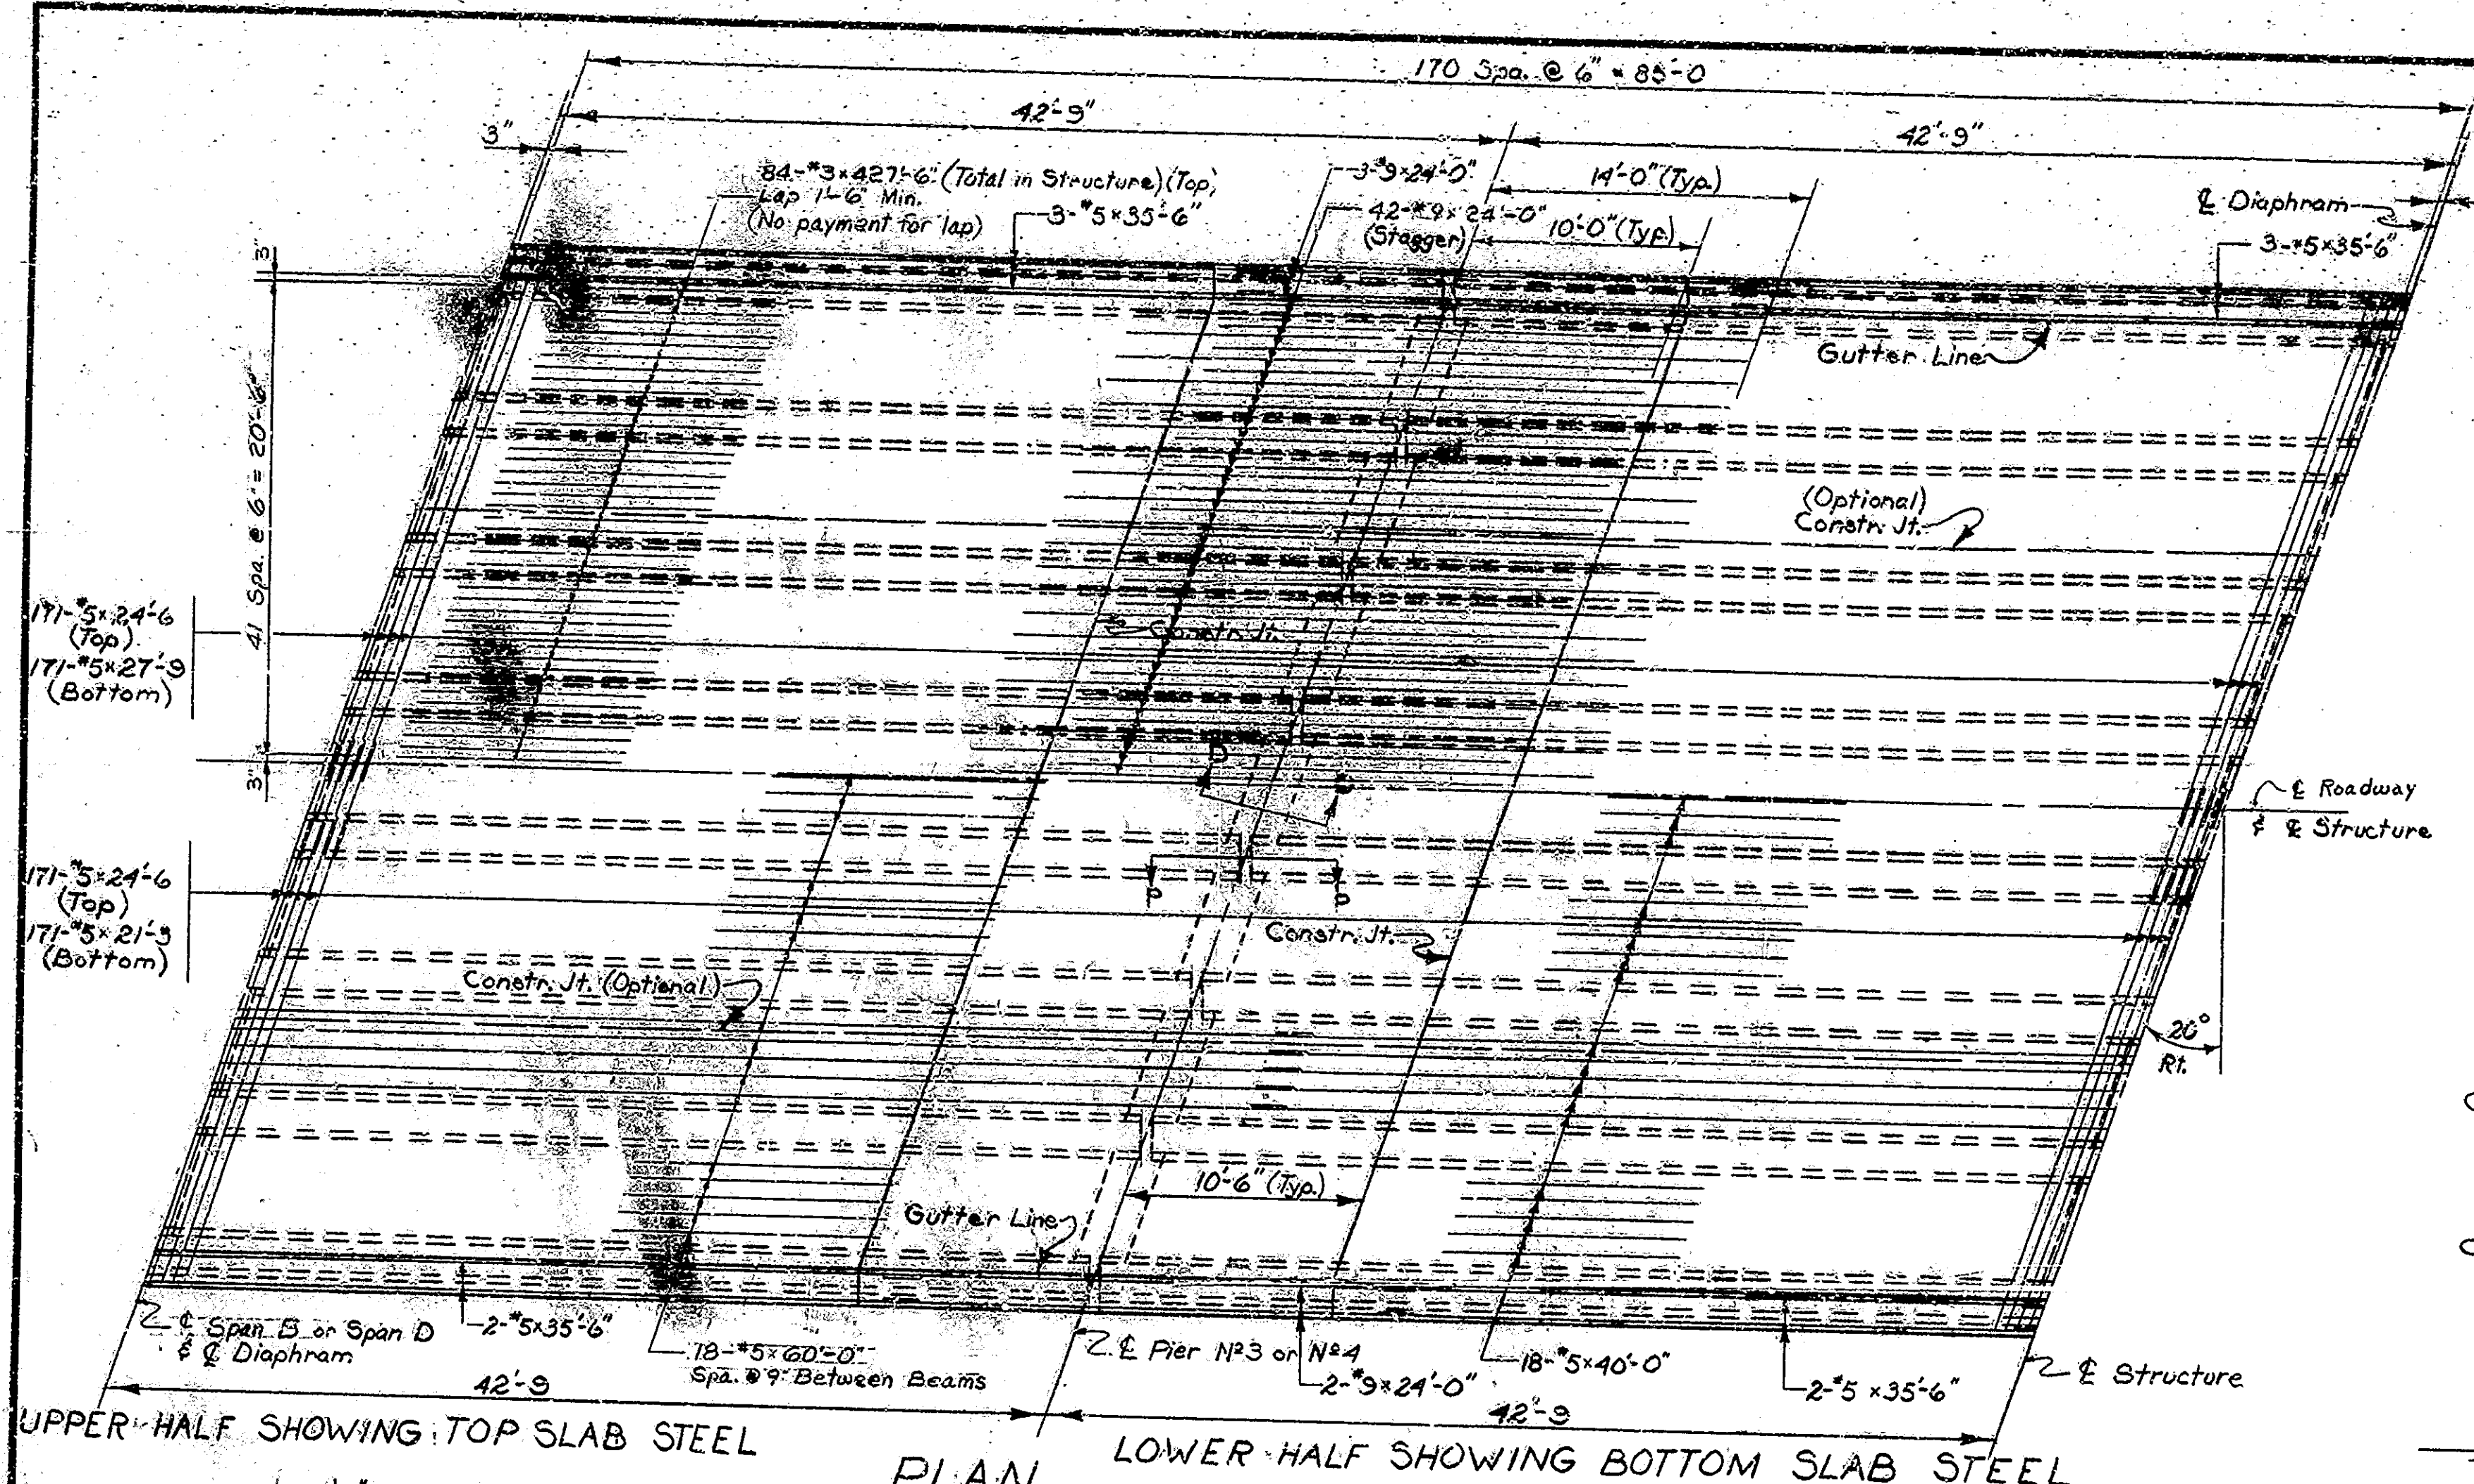 170 Spa. @ 6" = 85'-0
42'-9"
42'-9"
3"
84-#3×427'-6" (Total in Structure)(Top)
Lap 1'-6" Min.
(No payment for lap)
3-#5×35'-6"
3-#9×24'-0"
42-#9×24'-0"
(Stagger)
14'-0" (Typ.)
10'-0" (Typ.)
℄ Diaphram
3-#5×35'-6"
3"
Gutter Line
41 Spa. @ 6" = 20'-6"
(Optional)
Constr. Jt.
171-#5×24'-6
(Top)
171-#5×27'-9
(Bottom)
Constr. Jt.
3"
℄ Roadway
& ℄ Structure
171-#5×24'-6
(Top)
171-#5×21'-3
(Bottom)
Constr. Jt.
Constr. Jt. (Optional)
20°
Rt.
10'-6" (Typ.)
Gutter Line
℄ Span B or Span D
& ℄ Diaphram
2-#5×35'-6"
78-#5×60'-0"
Spa. @ 9" Between Beams
℄ Pier Nº3 or Nº4
2-#9×24'-0"
18-#5×40'-0"
2-#5×35'-6"
℄ Structure
42'-9
42'-9
UPPER HALF SHOWING TOP SLAB STEEL
LOWER HALF SHOWING BOTTOM SLAB STEEL
PLAN